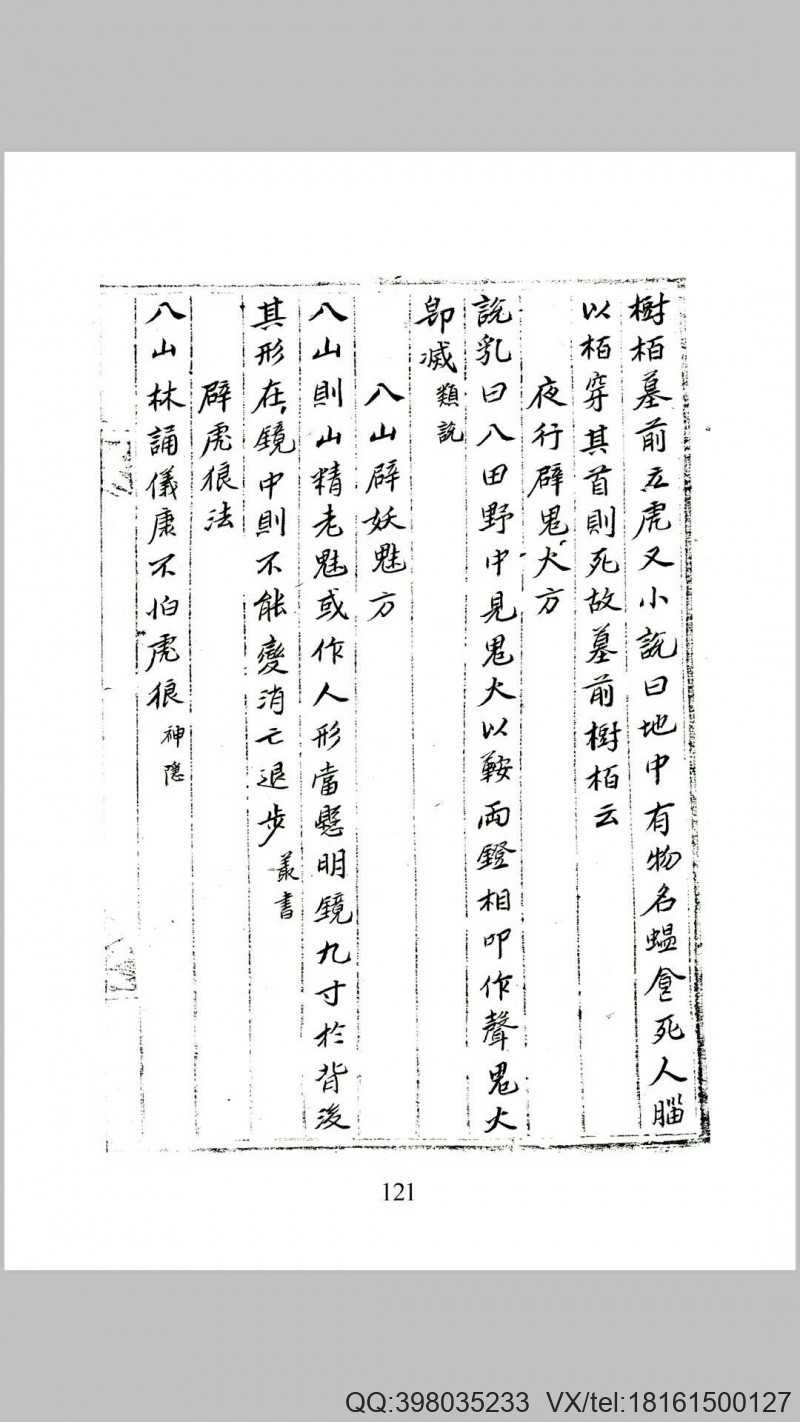 樹栢墓前立虎又小説曰地中有物名蝹食死人腦
以栢穿其首則死故墓前樹栢云
夜行辟鬼火方
説乳曰入田野中見鬼火以鞍両鐙相叩作聲鬼火
即滅類説
入山辟妖魅方
入山則山精老魅或作人形當懸明鏡九寸於背後
其形在鏡中則不能變消亡退步叢書
辟虎狼法
入山林誦儀康不怕虎狼神隠
121
QQ:398035233 VX/tel:18161500127